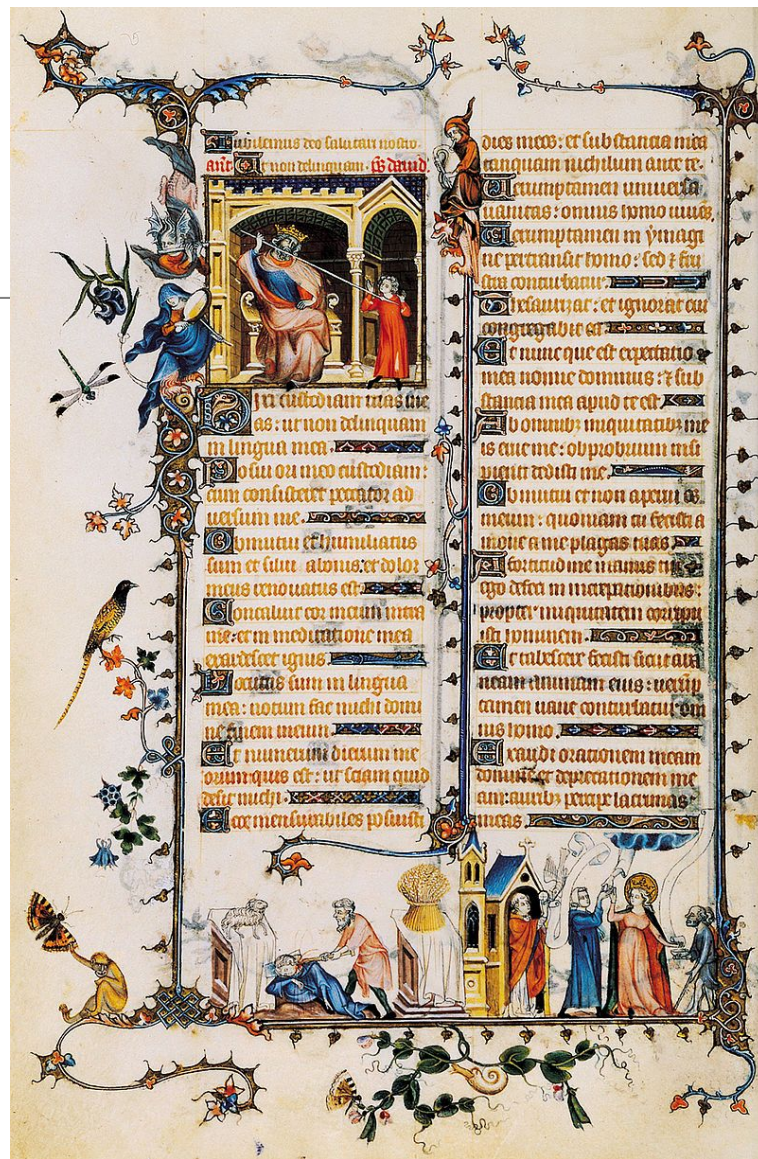 Iubilemus deo salutari nostro.
añt Ut non delinquam. ps dauid.
Dixi custodiam uias me
as: ut non delinquam
in lingua mea.
Posui ori meo custodiam:
cum consisteret peccator ad
uersum me.
Obmutui et humiliatus
sum et silui abonis: et dolor
meus renouatus est.
Concaluit cor meum intra
me: et in meditatione mea
exardescet ignis
Locutus sum in lingua
mea: notum fac michi domi
ne finem meum.
Et numerum dierum me
orum quis est: ut sciam quid
desit michi.
Ecce mensurabiles posuisti
dies meos: et substancia mea
tanquam nichilum ante te.
Uerumptamen uniuersa
uanitas: omnis homo uiuẽs.
Uerumptamen in ymagi
ne pertransit homo: sed ⁊ frus
tra conturbatur.
Thesaurizat: et ignorat cui
congregabit ea
Et nunc que est expectatio
mea nonne dominus: ⁊ sub
stancia mea apud te est.
Ab omnibꝫ iniquitatibꝫ me
is erue me: obprobrium insi
pienti dedisti me.
Obmutui et non aperui os
meum: quoniam tu fecisti a
moue a me plagas tuas
A fortitudine manus tue
ego defeci in increpationibus:
propter iniquitatem corripu
isti hominem.
Et tabescere fecisti sicut ara
neam animam eius: uerũp
tamen uane conturbatur om
nis homo.
Exaudi orationem meam
domine et deprecationem me
am: auribꝫ percipe lacrimas
meas.